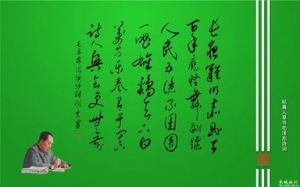 长夜难明赤县天
百年魔怪舞翩跹
人民五亿不团圆
一唱雄鸡天下白
万方乐奏有于阗
诗人兴会更无前
真人草书毛泽东诗词